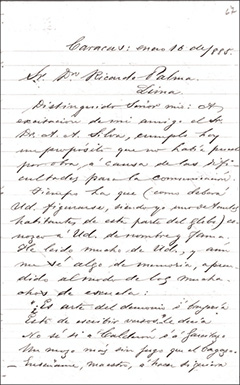 Caracas: enero 10 de/885.
Sr. Dr. Ricardo Palma.
Lima
Distinguido Señor mio: A
excitación de mi amigo el Sr.
Dr. A. A. Silva, cumplo hoy
un propósito que no habia puesto
por obra á causa de las difi-
cultades para la comunicación.
Tiempo ha que (como deberá
Ud. figurarse, siendo yo uno de tantos
habitantes de esta parte del globo) co-
nozco á Ud. de nombre y fama.
He leido mucho de Ud., y aun
me sé algo de memoria, apren-
dido al modo de los mucha-
chos de escuela:
"¿Es arte del demonio ó brujería
Esto de escribir versos? le decia
No sé si á Calderón ó Garcilaso
Un mozo más sin jugo que el bagazo.
Enséñeme, maestro, á hacer siquiera